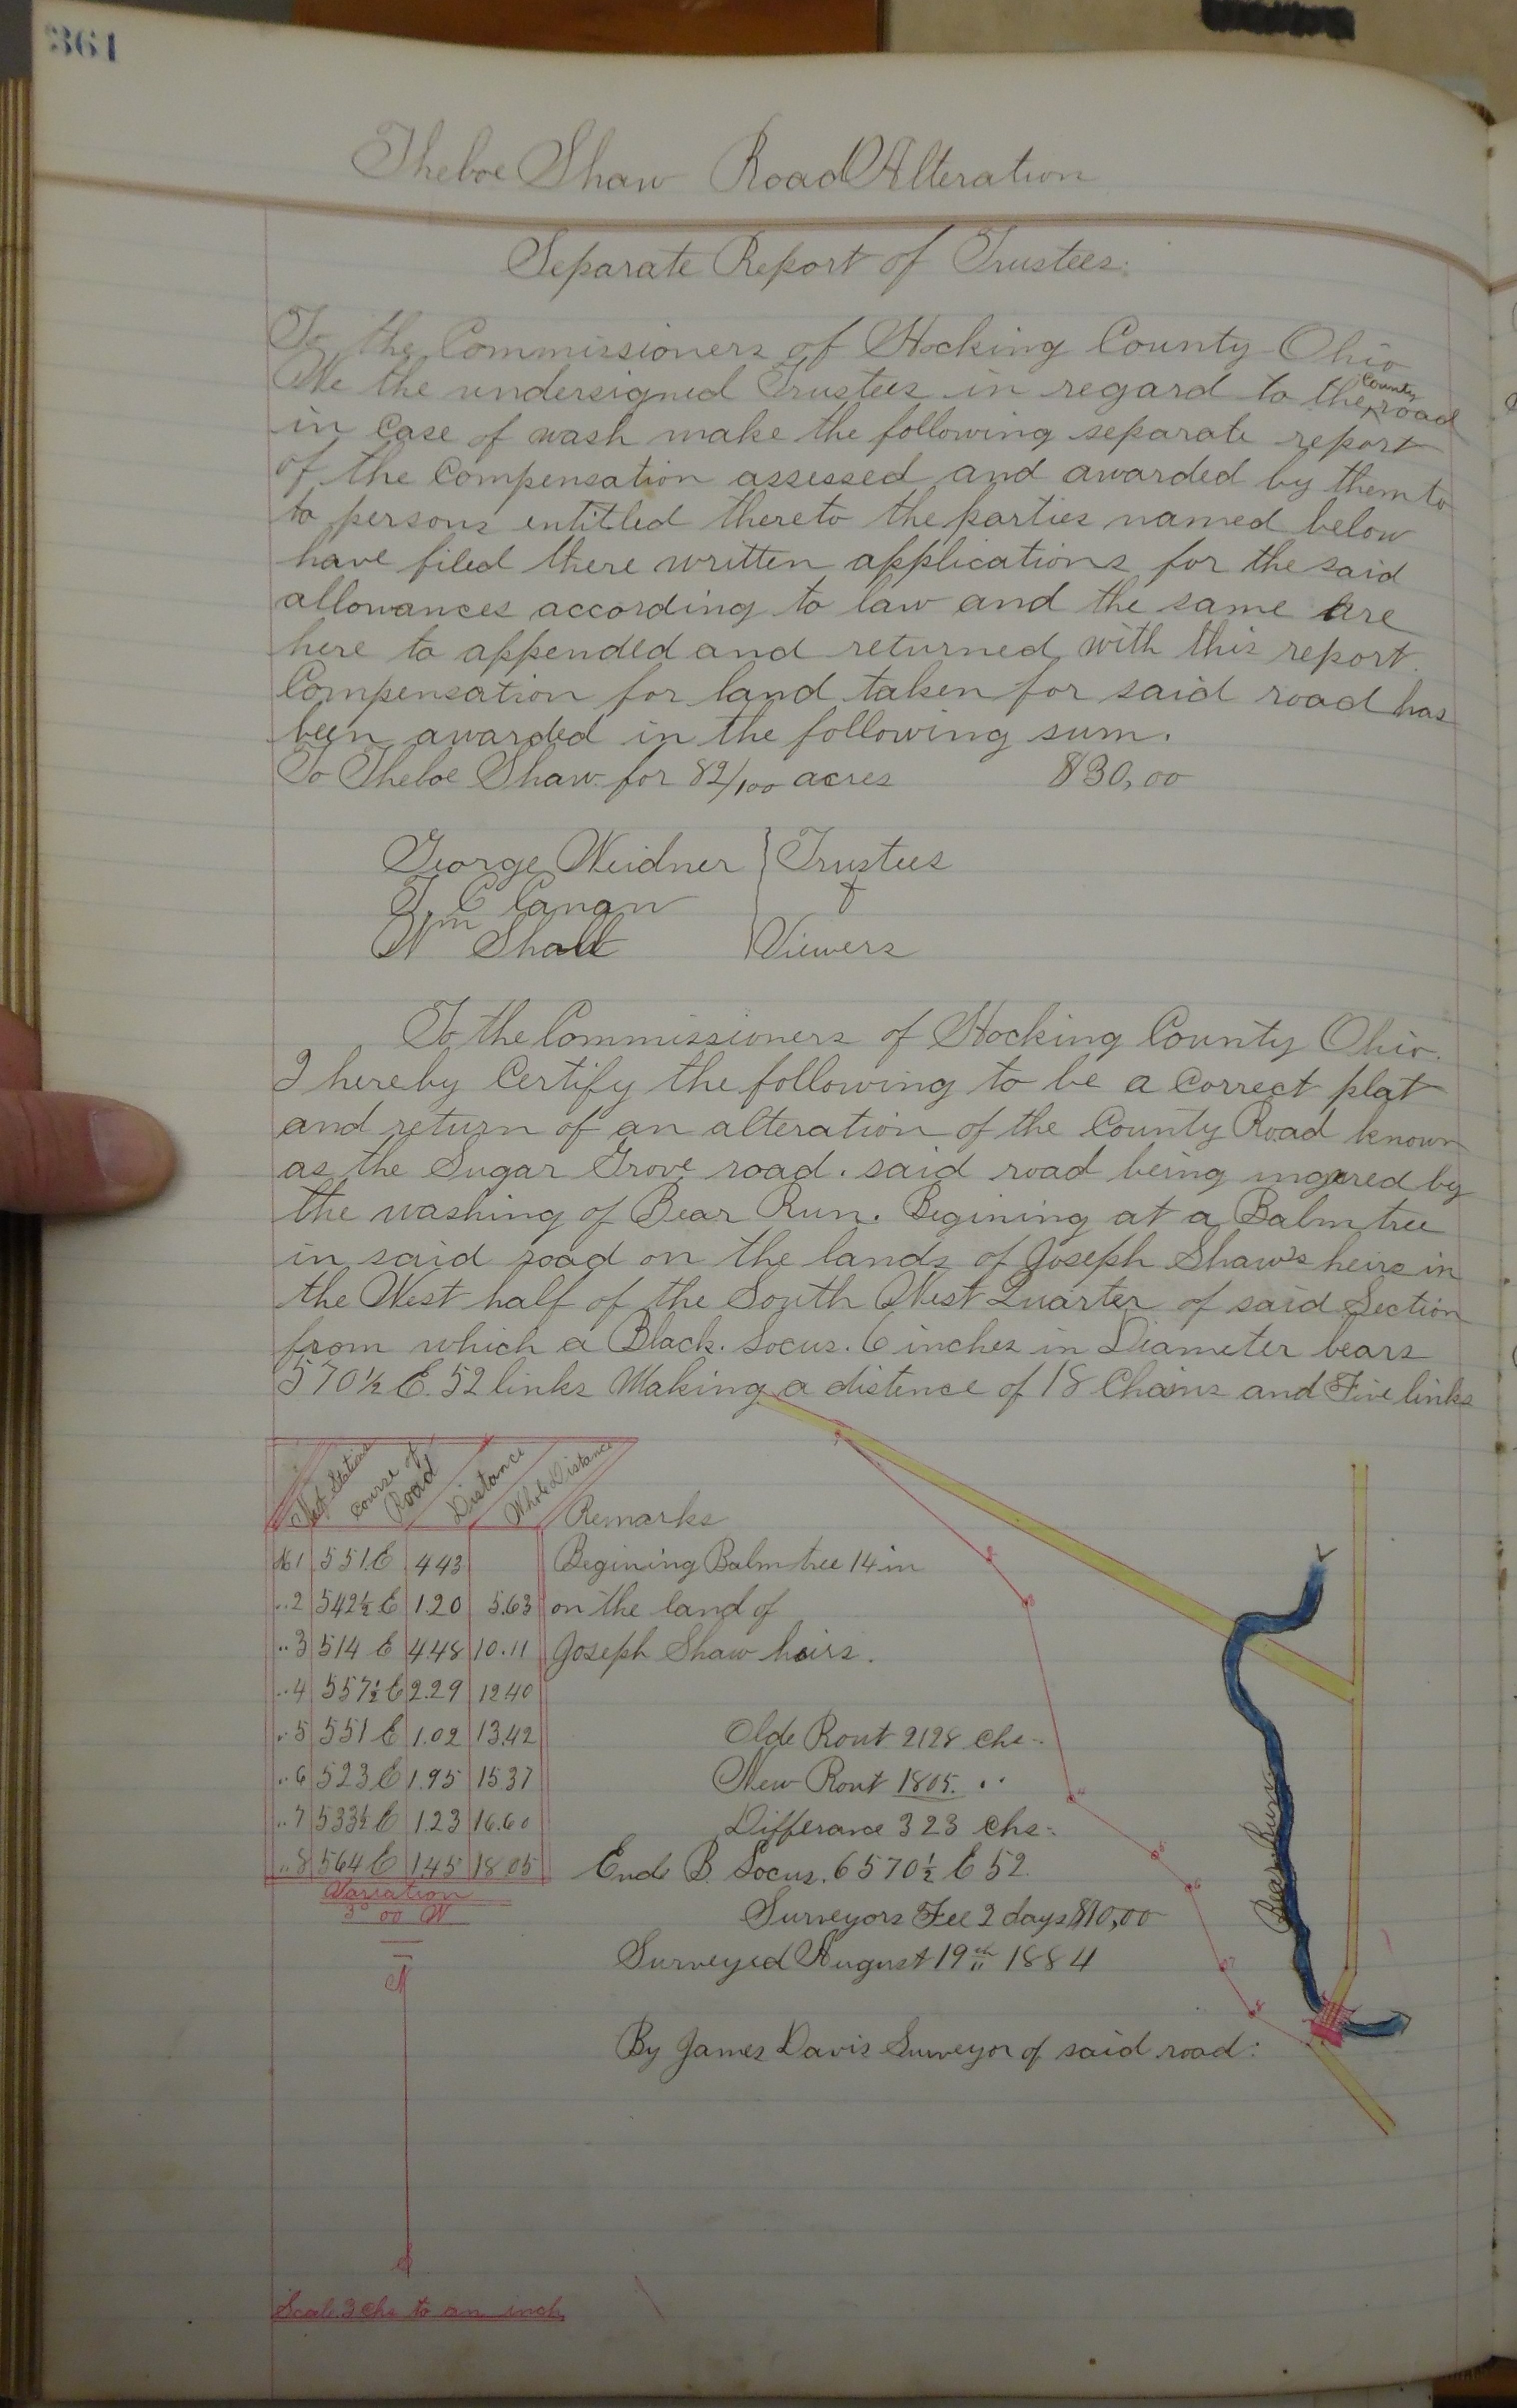 361
Theboe Shaw Road Alteration
Separate Report of Trustees.
To the Commissioners of Hocking County Ohio
We the undersigned Trustees in regard to the County road
in Case of wash make the following separate report
of the Compensation assessed and awarded by them to
to persons entitled thereto the parties named below
have filed there written applications for the said
allowances according to law and the same are
here to appended and returned with this report.
Compensation for land taken for said road has
been awarded in the following sum.
To Theboe Shaw for 82/100 acres $30,00
George Weidner } Trustees
T. C Canan &
Wm Shall Viewers
To the Commissioners of Hocking County Ohio.
I hereby Certify the following to be a Correct plat
and return of an alteration of the County Road known
as the Sugar Grove road. said road being ingered by
the washing of Bear Run. Begining at a Balm tree
in said road on the lands of Joseph Shaw's heirs in
the West half of the South West Quarter of said Section
from which a Black. Locus. 6 inches in Diameter bears
S70½ E. 52 links Making a distence of 18 Chains and Five links
No of Stations Course of Road Distance Whole Distance Remarks
No 1 S51 E 443 Begining Balm tree 14 in
..2 S42½ E 1.20 5.63 on the land of
..3 S14 E 4.48 10.11 Joseph Shaw heirs.
..4 S57½ E 2.29 12.40
..5 S51 E 1.02 13.42 Olde Rout 2128 chs..
..6 S23 E 1.95 15.37 New Rout 1805. ..
..7 S33½ E 1.23 16.60 Differance 323 chs.
..8 S64 E 1.45 18.05 Ende B. Locus. 6 S70½ E 52.
Variation
3° 00 W
Surveyors Fee 2 days $10,00
Surveyed August 19th 1884
By James Davis Surveyor of said road:
Bear Run
N
S
6
7
8
Scale 3 chs to an inch